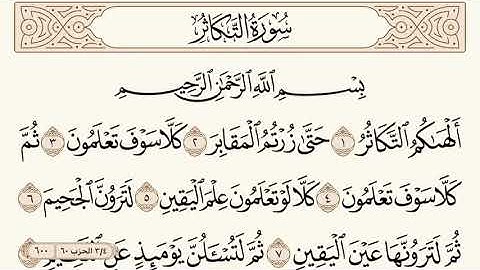 سُورَةُ التَّكَاثُرِ
بِسْمِ ٱللَّهِ ٱلرَّحْمَٰنِ ٱلرَّحِيمِ
أَلْهَىٰكُمُ ٱلتَّكَاثُرُ ١ حَتَّىٰ زُرْتُمُ ٱلْمَقَابِرَ ٢ كَلَّا سَوْفَ تَعْلَمُونَ ٣ ثُمَّ
كَلَّا سَوْفَ تَعْلَمُونَ ٤ كَلَّا لَوْ تَعْلَمُونَ عِلْمَ ٱلْيَقِينِ ٥ لَتَرَوُنَّ ٱلْجَحِيمَ ٦
ثُمَّ لَتَرَوُنَّهَا عَيْنَ ٱلْيَقِينِ ٧ ثُمَّ لَتُسْـَٔلُنَّ يَوْمَئِذٍ عَنِ
٣/٤ الحزب ٦٠
٦٠٠